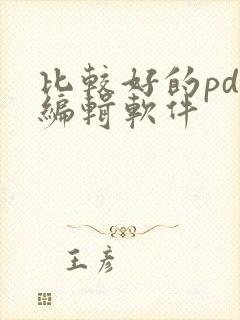 比較好的pd
編輯軟件
王彥